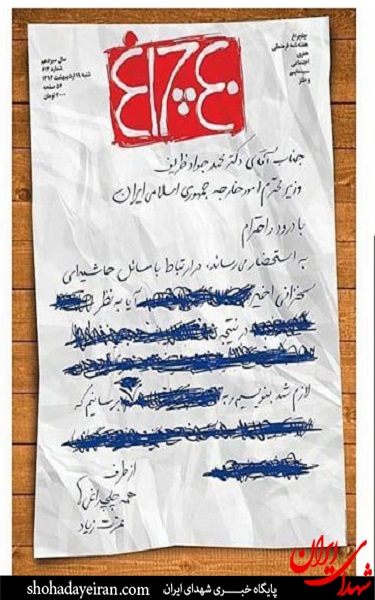 سال سیزدهم
شماره ۶۱۴
شنبه ۱۹ اردیبهشت ۱۳۹۴
۵۶ صفحه
۲۰۰۰ تومان
چهل چراغ
چلچراغ
هفته‌نامه فرهنگی
هنری
اجتماعی
سینمایی
و طنز
جناب آقای دکتر محمد جواد ظریف
وزیر محترم امور خارجه جمهوری اسلامی ایران
با درود و احترام
به استحضار می‌رساند، در ارتباط با مسائل حاشیه‌ای
سخنرانی اخیر آیا به نظر
در نتیجه
لازم شد بنویسیم و به برسانیم که
از طرف
همه چلچراغی‌ها
عزت زیاد
شهدای ایران
shohadayeiran.com پایگاه خبری شهدای ایران